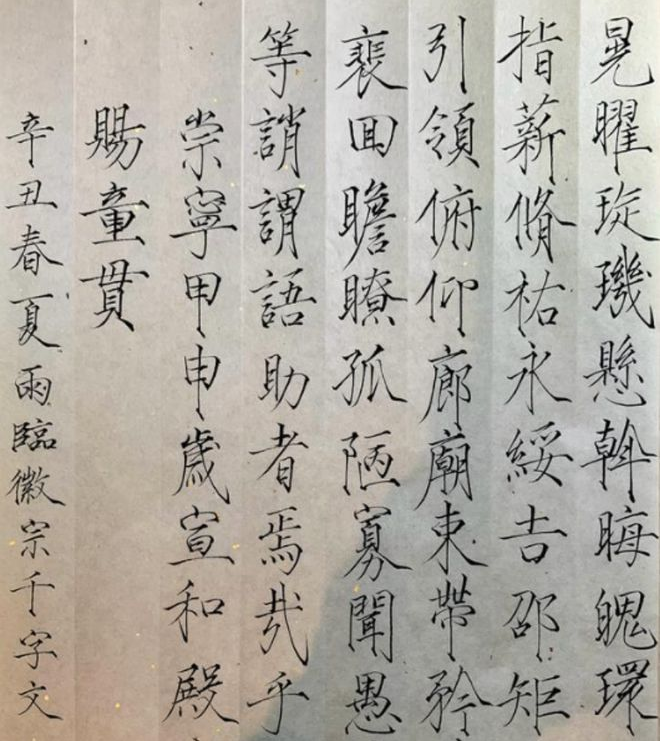 晃曜琁璣懸斡晦魄環
指薪脩祐永綏吉邵矩
引領俯仰廊廟束帶矜
裵回瞻瞭孤陋寡聞愚
等誚謂語助者焉哉乎
崇寧甲申歲宣和殿
賜童貫
辛丑春夏雨臨徽宗千字文